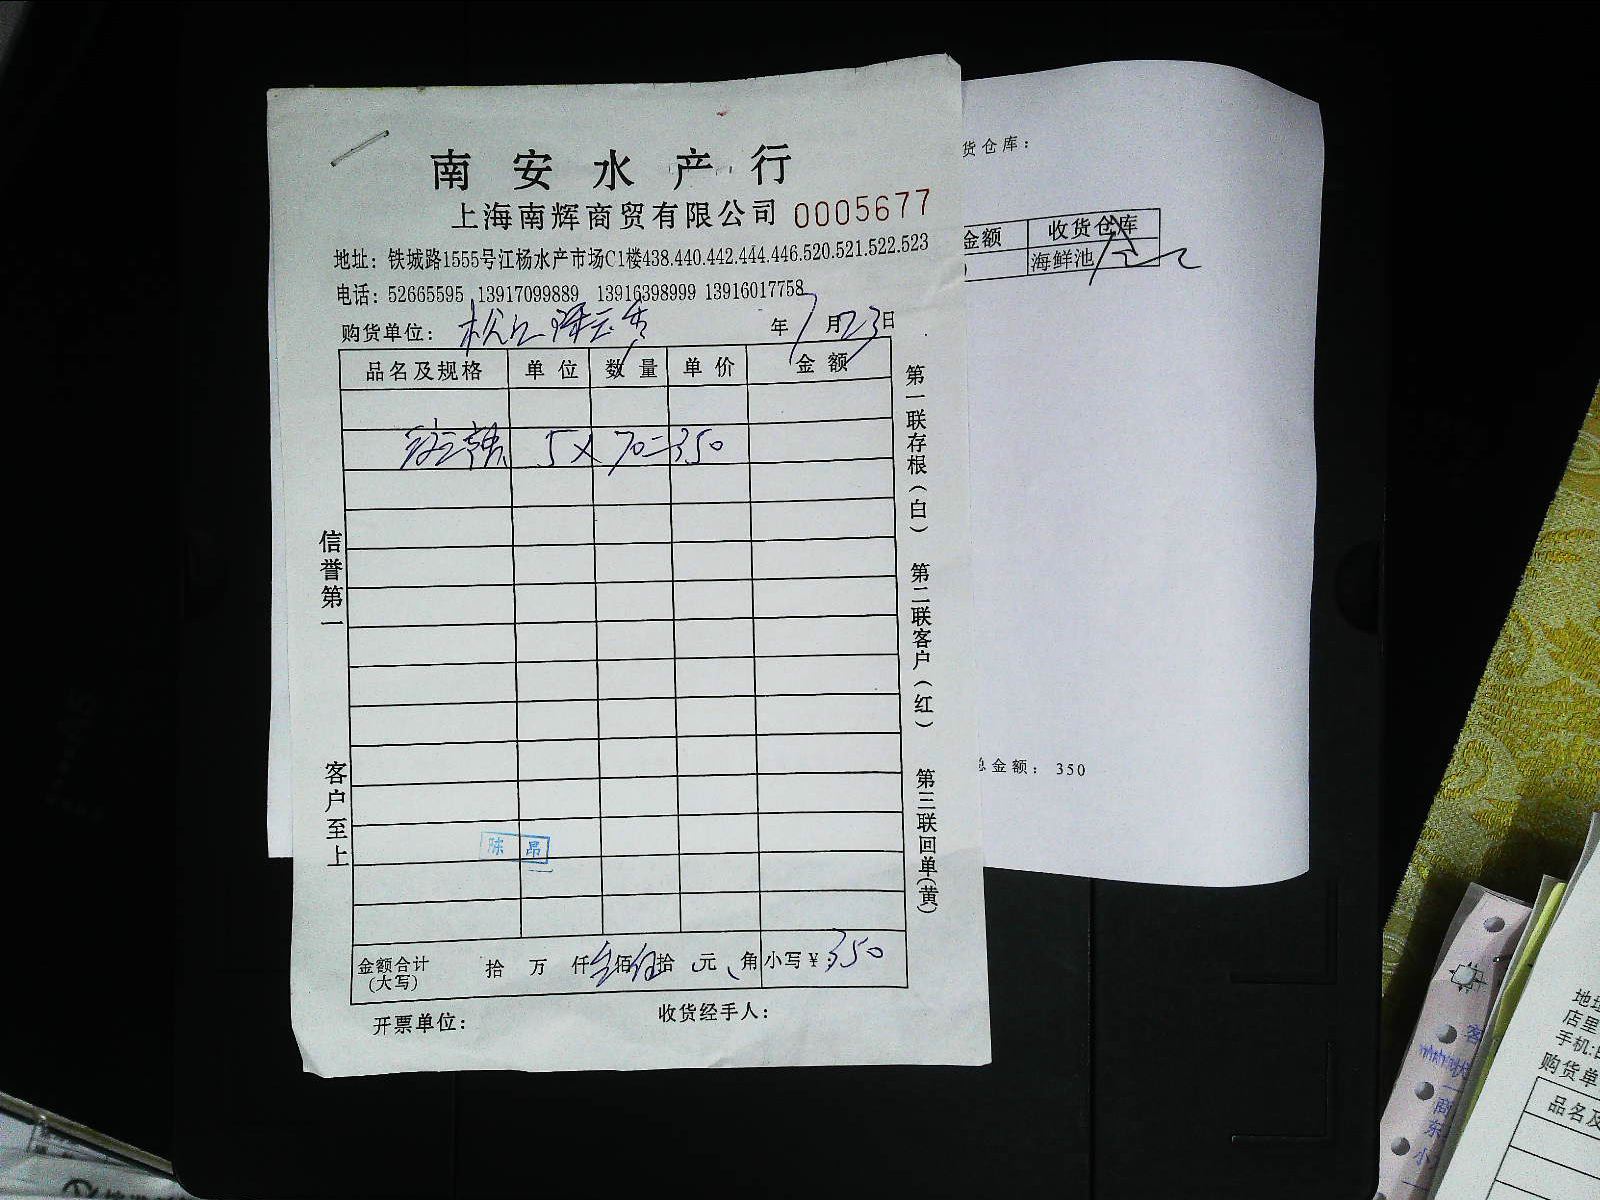 南安水产行
上海南辉商贸有限公司 0005677
地址：铁城路1555号江杨水产市场C1楼438.440.442.444.446.520.521.522.523
电话：52665595 13917099889 13916398999 13916017758
购货单位：松江 年7月23日
品名及规格 单位 数量 单价 金额
5×70=350
金额合计(大写) 拾 万 仟叁佰伍拾 元 角 小写￥350
开票单位： 收货经手人：
信誉第一
客户至上
第一联存根(白)
第二联客户(红)
第三联回单(黄)
陈昂
货仓库：
金额 收货仓库
海鲜池
总金额：350
地址
店里
手机:
购货单
品名及
客
商
东
小